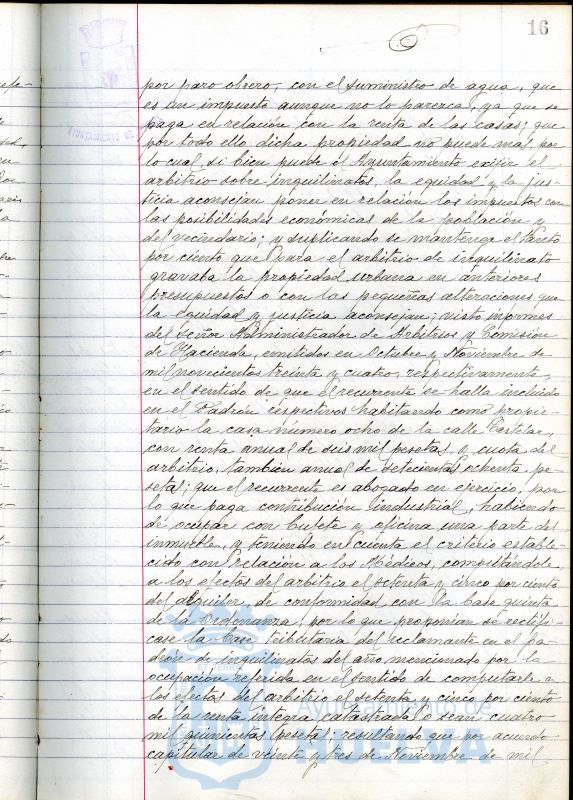 16
por paro obrero, con el suministro de agua, que
es un impuesto aunque no lo parezca, ya que se
paga en relación con la renta de las casas; que
por todo ello dicha propiedad no puede mas, por
lo cual si bien puede el Ayuntamiento exijir el
arbitrio sobre inquilinatos, la equidad y la jus-
ticia aconsejan poner en relación los impuestos con
las posibilidades económicas de la población y
del vecindario; y suplicando se mantenga el tanto
por ciento que para el arbitrio de inquilinato
gravaba la propiedad urbana en anteriores
presupuestos o con las pequeñas alteraciones que
la equidad y justicia aconsejan; visto informes
del Señor Administrador de Arbitrios y Comisión
de Hacienda, emitidos en Octubre y Noviembre de
mil novecientos treinta y cuatro, respectivamente,
en el sentido de que el recurrente se halla incluido
en el Padrón respectivos habitando como propie-
tario la casa número ocho de la calle Castelar,
con renta anual de seis mil pesetas, y cuota del
arbitrio, tambien anual de setecientas ochenta pe-
setas; que el recurrente es abogado en ejercicio, por
lo que paga contribución industrial, habiendo
de ocupar con bufete y oficina una parte del
inmueble, y teniendo en cuenta el criterio estable-
cido con relación a los Médicos, computándole,
a los efectos del arbitrio el setenta y cinco por ciento
del alquiler, de conformidad con la base quinta
de la Ordenanza, por lo que proponian se rectifi-
case la base tributaria del reclamante en el pa-
drón de inquilinatos del año mencionado por la
ocupación referida en el sentido de computarle a
los efectos del arbitrio el setenta y cinco por ciento
de la renta íntegra catastrada o sean cuatro
mil quinientas pesetas; resultando que por acuerdo
capitular de veinte y tres de Noviembre de mil
Ayuntamiento de
HUELVA